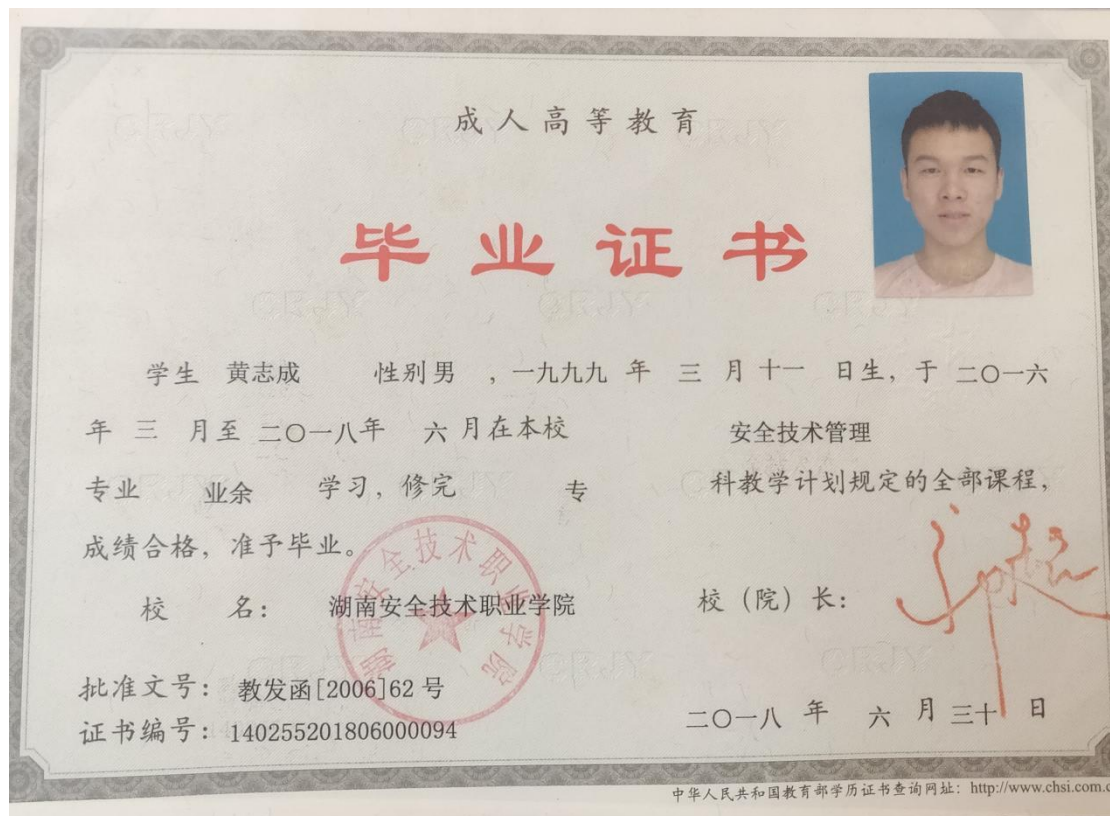 成人高等教育
毕业证书
学生 黄志成 性别 男 ，一九九九 年 三 月 十一 日生，于 二〇一六
年 三 月至 二〇一八年 六 月在本校 安全技术管理
专业 业余 学习，修完 专 科教学计划规定的全部课程，
成绩合格，准予毕业。
校 名： 湖南安全技术职业学院 校（院）长：
湖南安全技术职业学院
批准文号： 教发函[2006]62 号
证书编号：140255201806000094
二〇一八 年 六 月 三十 日
中华人民共和国教育部学历证书查询网址：http://www.chsi.com.c
CRJY